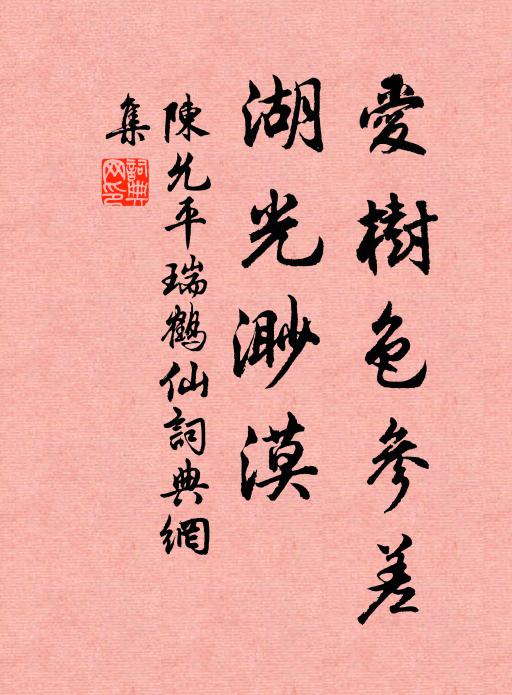 愛樹色參差
湖光渺漠
陳允平瑞鶴仙詞典網
集
詞典
网印